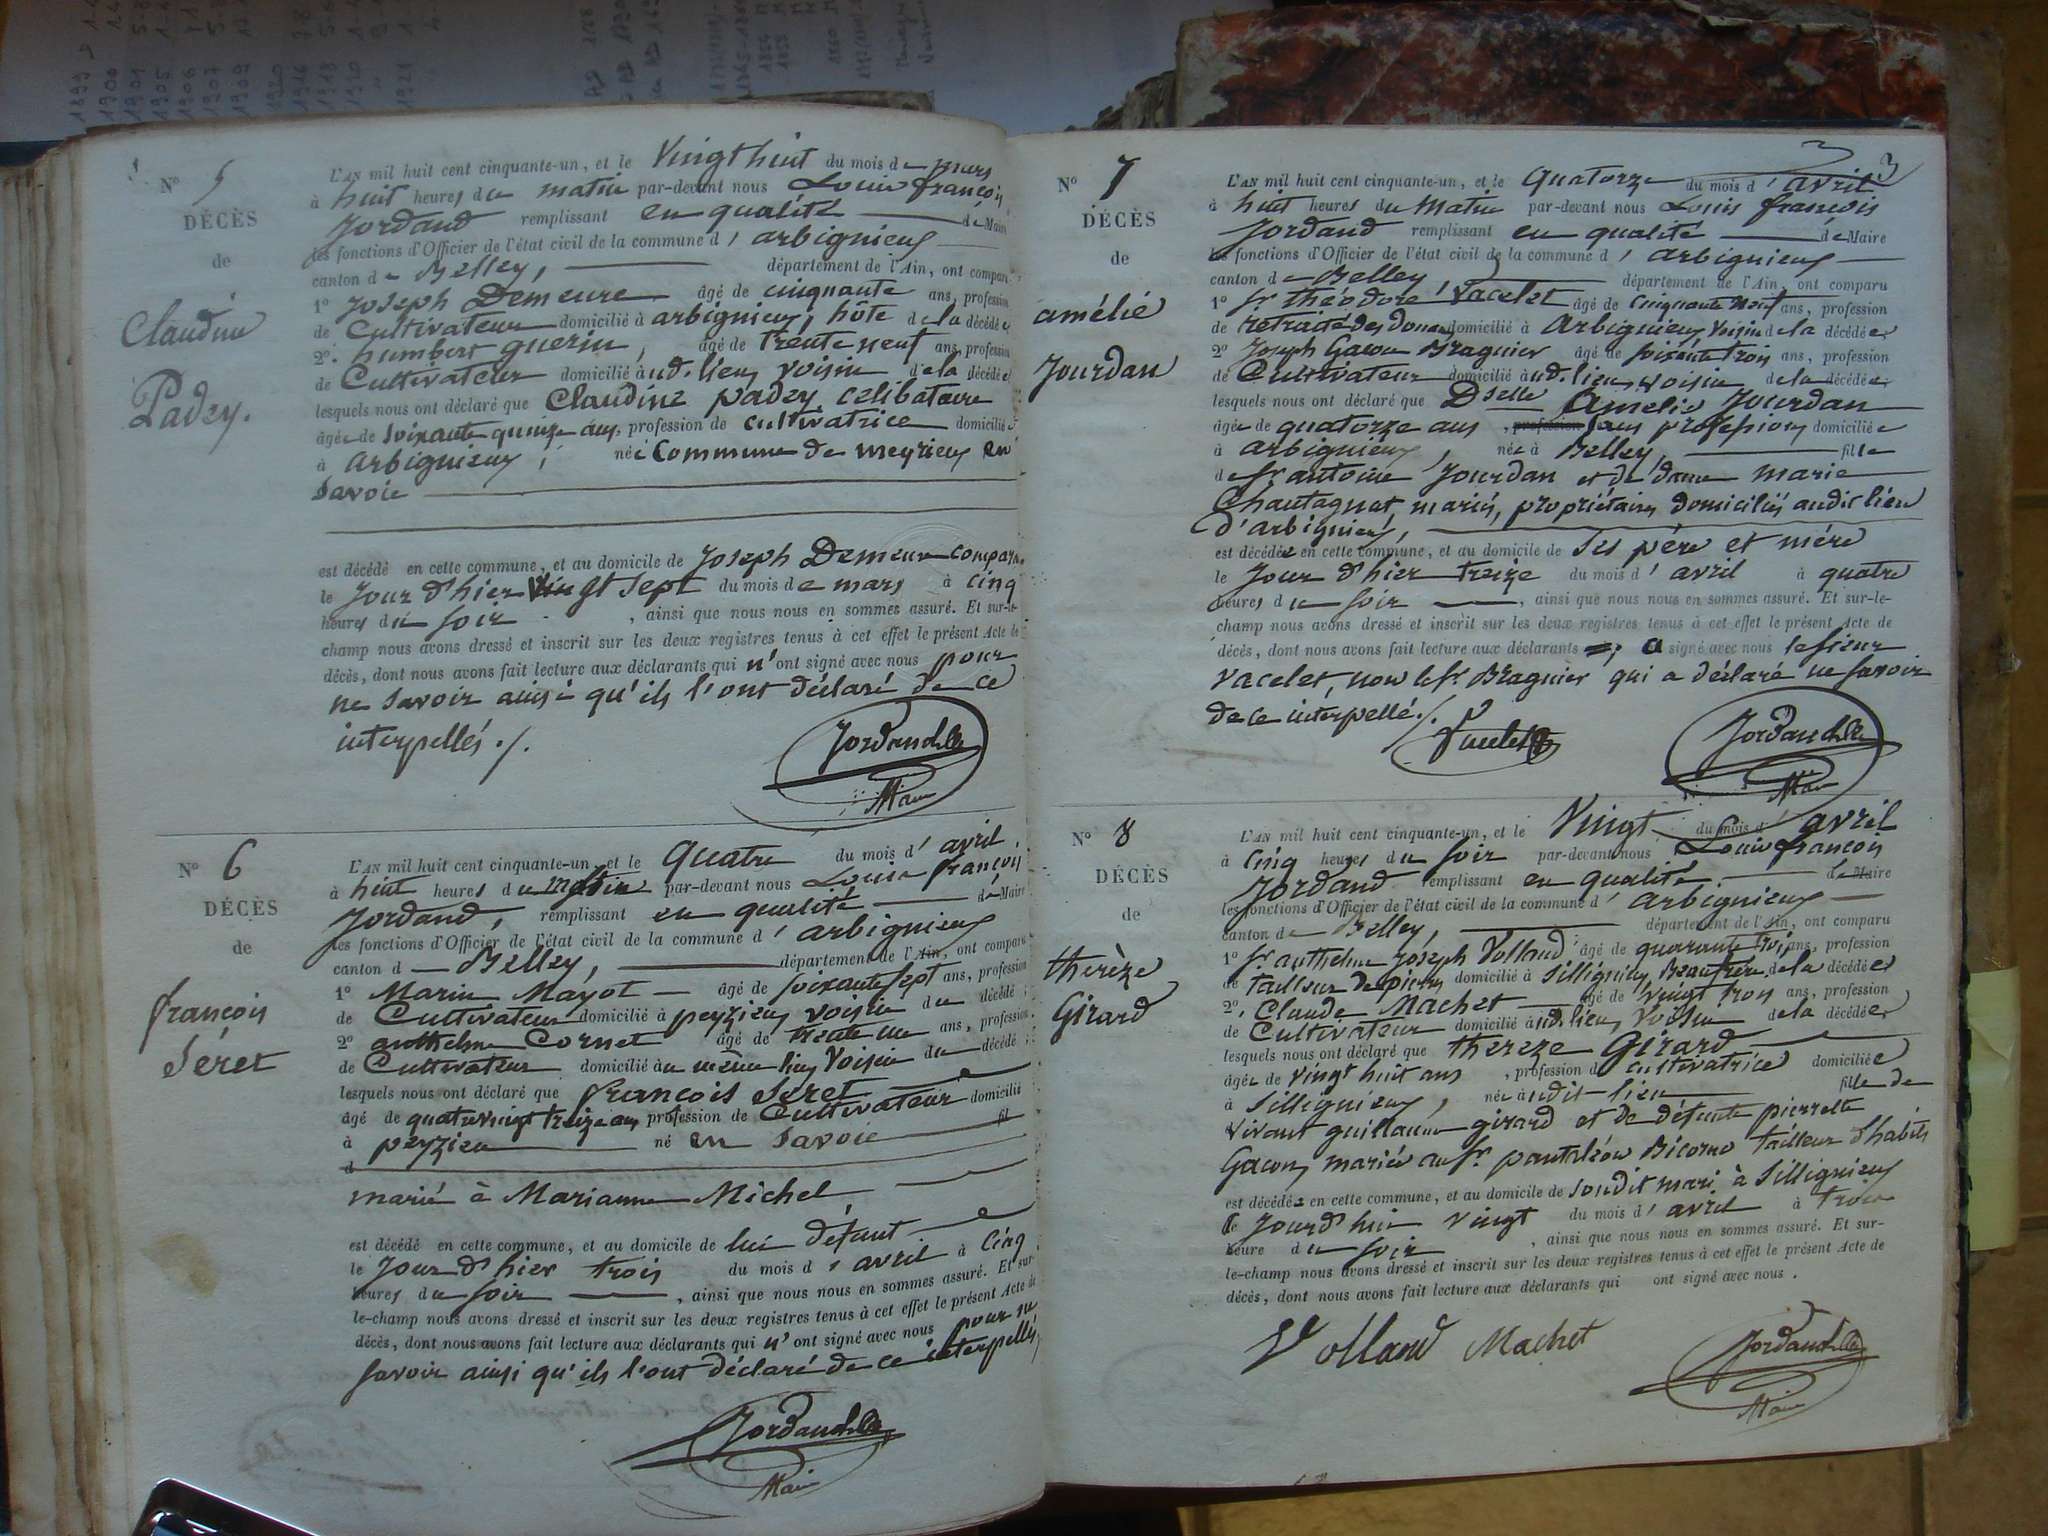 N° 5
DÉCÈS
de
Claudine
Padey.
L'AN mil huit cent cinquante-un, et le Vingt huit du mois de mars
à huit heures du matin par-devant nous Louis françois
Jordand remplissant en qualité de Maire
les fonctions d'Officier de l'état civil de la commune d'arbignieux
canton de Belley, département de l'Ain, ont comparu
1° Joseph Demeure âgé de cinquante ans, profession
de Cultivateur domicilié à arbignieux, hôte de la décédée
2° humbert guerin, âgé de trente neuf ans, profession
de Cultivateur domicilié aud. lieu, voisin de la décédée
lesquels nous ont déclaré que Claudine padey celibataire
âgée de soixante quinze ans, profession de cultivatrice domiciliée
à arbignieux, née Commune de meyrieux en
Savoie
est décédé en cette commune, et au domicile de Joseph Demeure compara
le Jour d'hier vingt sept du mois de mars à cinq
heures du soir, ainsi que nous nous en sommes assuré. Et sur-le-
champ nous avons dressé et inscrit sur les deux registres tenus à cet effet le présent Acte de
décès, dont nous avons fait lecture aux déclarants qui n'ont signé avec nous pour
ne savoir ainsi qu'ils l'ont déclaré de ce
interpellés ./.
Jordand
Maire
N° 6
DÉCÈS
de
françois
Séret
L'AN mil huit cent cinquante-un, et le Quatre du mois d'avril,
à huit heures du matin par-devant nous Louis françois
Jordand, remplissant en qualité de Maire
les fonctions d'Officier de l'état civil de la commune d'arbignieux
canton d Belley, département de l'Ain, ont comparu
1° Marin Mayot âgé de soixante sept ans, profession
de Cultivateur domicilié à peyzieu, voisin du décédé ;
2° anthelme Cornet âgé de trente un ans, profession
de Cultivateur domicilié au même lieu, Voisin du décédé ;
lesquels nous ont déclaré que françois Séret
âgé de quatrevingt treize ans profession de Cultivateur domicilié
à peyzieu né en Savoie fil
d
marié à Marianne Michel
est décédé en cette commune, et au domicile de lui défunt
le Jour d'hier trois du mois d'avril à Cinq
heures du soir, ainsi que nous nous en sommes assuré. Et sur-
le-champ nous avons dressé et inscrit sur les deux registres tenus à cet effet le présent Acte de
décès, dont nous avons fait lecture aux déclarants qui n'ont signé avec nous pour ne
savoir ainsi qu'ils l'ont déclaré de ce interpellés
Jordand
Maire
3
N° 7
DÉCÈS
de
amélie
Jourdan
L'AN mil huit cent cinquante-un, et le Quatorze du mois d'avril
à huit heures du Matin par-devant nous Louis françois
Jordand remplissant en qualité de Maire
les fonctions d'Officier de l'état civil de la commune d'arbignieux
canton de Belley, département de l'Ain, ont comparu
1° Sr. théodore Vacelet âgé de Cinquante Neuf ans, profession
de retraité des Douanes domicilié à Arbignieux, voisin de la décédée
2° Joseph Gacon Bragnier âgé de soixante trois ans, profession
de Cultivateur domicilié aud. lieu, voisin de la décédée
lesquels nous ont déclaré que Dselle Amélie Jourdan
âgée de quatorze ans, profession sans profession domiciliée
à arbignieux, née à Belley, fille
de Sr. antoine Jourdan et de dame marie
Chautagnat, mariés, propriétaires domiciliés audit lieu
d'arbignieux,
est décédée en cette commune, et au domicile de ses père et mère
le Jour d'hier treize du mois d'avril à quatre
heures du soir, ainsi que nous nous en sommes assuré. Et sur-le-
champ nous avons dressé et inscrit sur les deux registres tenus à cet effet le présent Acte de
décès, dont nous avons fait lecture aux déclarants a signé avec nous le sieur
vacelet, non le Sr. Bragnier qui a déclaré ne savoir
de ce interpellé ./.
Vacelet
Jordand
Maire
N° 8
DÉCÈS
de
therèze
Girard
L'AN mil huit cent cinquante-un, et le Vingt du mois d'avril
à cinq heures du soir par-devant nous Louis françois
Jordand remplissant en qualité de Maire
les fonctions d'Officier de l'état civil de la commune d'arbignieux
canton de Belley, département de l'Ain, ont comparu
1° Sr. anthelme Joseph Volland âgé de quarante trois ans, profession
de tailleur de pierres domicilié à Sillignieu, Beaufrère de la décédée
2° Claude Machet âgé de vingt trois ans, profession
de Cultivateur domicilié aud. lieu, voisin de la décédée
lesquels nous ont déclaré que thereze Girard
âgée de vingt huit ans, profession de cultivatrice domiciliée
à Sillignieux, née audit-lieu fille de
vivant guillaume girard et de défunte pierrette
Gacon, mariée au Sr. pantaléon Bicorne tailleur d'habits
est décédée en cette commune, et au domicile de sondit mari à Sillignieux
le Jourd'hui vingt du mois d'avril à trois
heure du soir, ainsi que nous nous en sommes assuré. Et sur-
le-champ nous avons dressé et inscrit sur les deux registres tenus à cet effet le présent Acte de
décès, dont nous avons fait lecture aux déclarants qui ont signé avec nous.
Volland Machet
Jordand
Maire